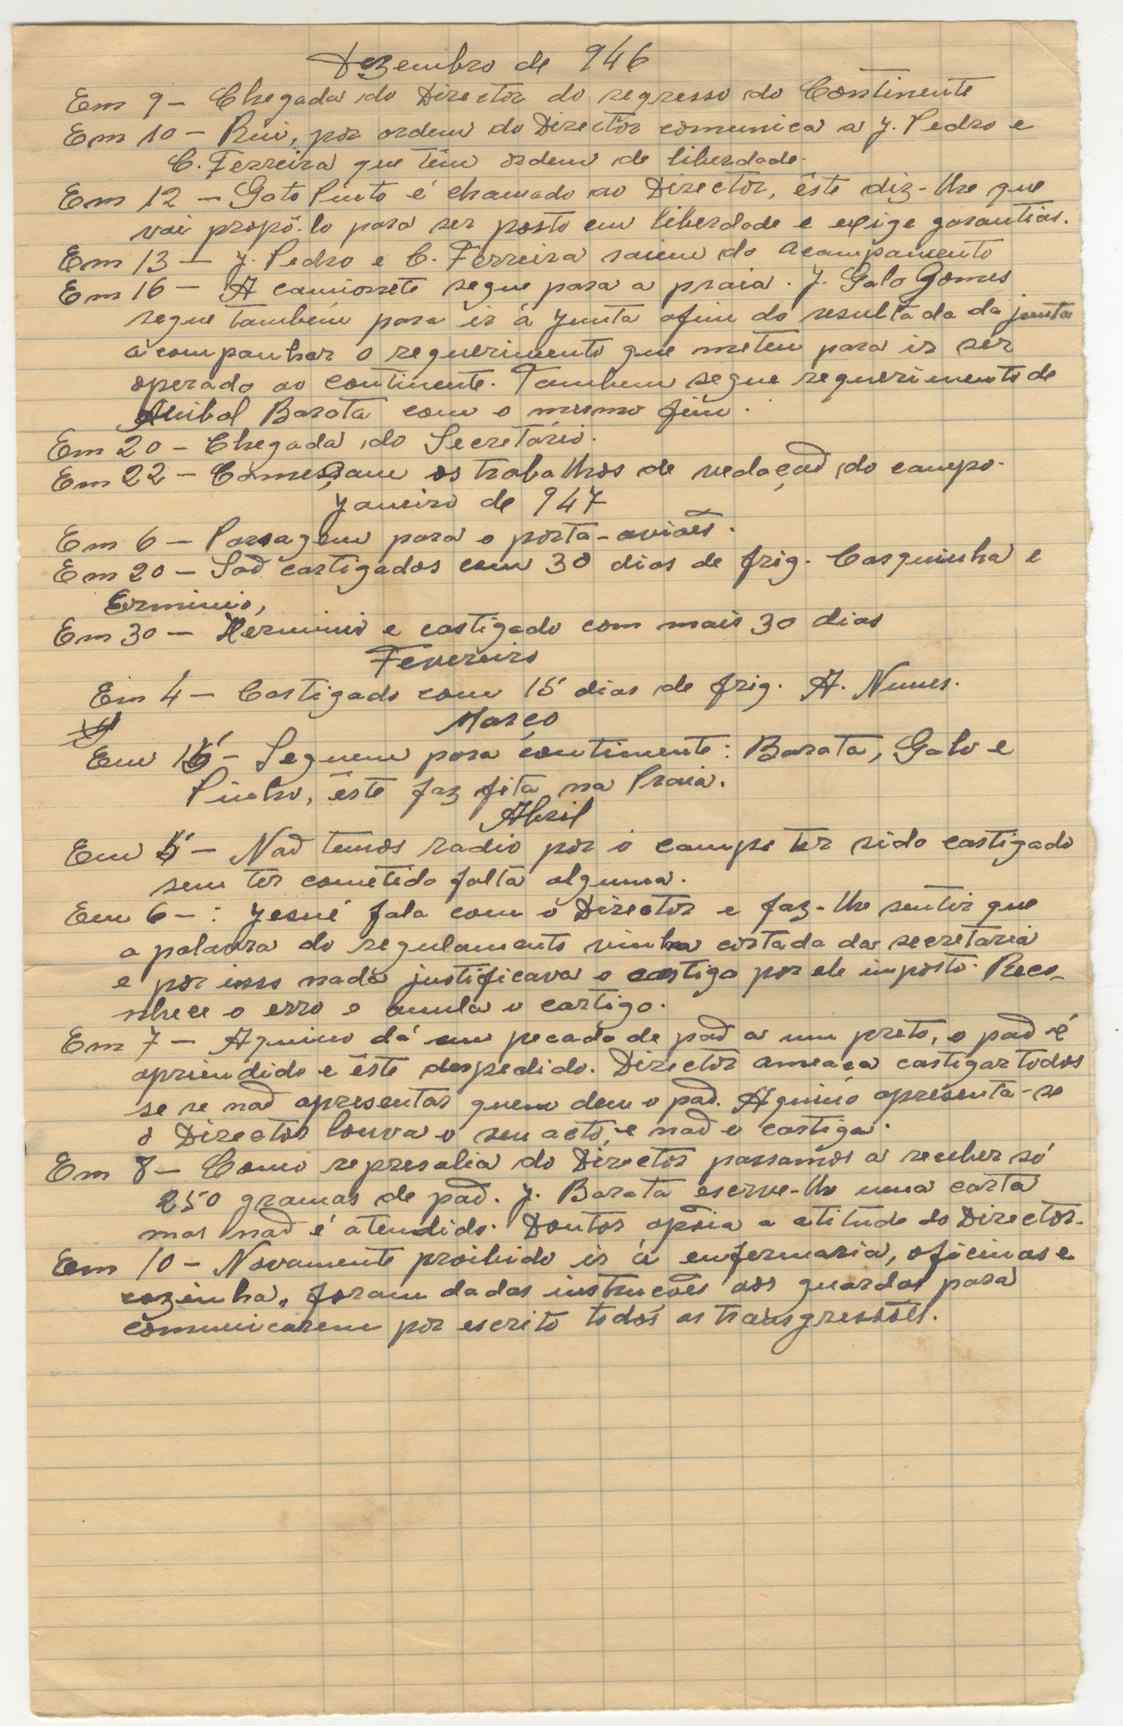 Dezembro de 946
Em 9 - Chegada do Director do regresso do Continente
Em 10 - Rui, por ordem do Director comunica a J. Pedro e
C. Ferreira que têm ordem de liberdade.
Em 12 - Gato Pinto é chamado ao Director, êste diz-lhe que
vai propô-lo para ser posto em liberdade e exige garantias.
Em 13 - J. Pedro e C. Ferreira saiem do acampamento
Em 16 - A camionete segue para a praia. J. Galo Gomes
segue também para ir à junta afim do resultado da junta
acompanhar o requerimento que meteu para ir ser
operado ao continente. Tambem segue requerimento de
Anibal Barata com o mesmo fim.
Em 20 - Chegada do Secretário.
Em 22 - Começam os trabalhos de vedação do campo.
Janeiro de 947
Em 6 - Passagem para o porta-aviões.
Em 20 - São castigados com 30 dias de frig. Casquinha e
Erminio,
Em 30 - Herminio e castigado com mais 30 dias
Fevereiro
Em 4 - Castigado com 15 dias de frig. A. Nunes.
Março
Em 15 - Seguem para continente: Barata, Galo e
Pinho, êste faz fita na Praia.
Abril
Em 5 - Não temos rádio por o campo ter sido castigado
sem ter cometido falta alguma.
Em 6 - : Josué fala com o Director e faz-lhe sentir que
a palavra do regulamento vinha cortada da secretaria
e por isso nada justificava o castigo por ele imposto. Reco-
nhece o erro e anula o castigo.
Em 7 - Aquino dá um pecado de pão a um preto, o pão é
apriendido e êste despedido. Director ameaça castigar todos
se se não apresentar quem deu o pão. Aquino apresenta-se
o Director louva o seu acto, e não o castiga.
Em 8 - Como represalia do Director passamos a receber só
250 gramas de pão. J. Barata escrve-lhe uma carta
mas não é atendido. Doutor apóia a atitude do Director.
Em 10 - Novamente proibido ir à enfermaria, oficinas e
cozinha, foram dadas instruções aos guardas para
comunicarem por escrito todos as transgressões.